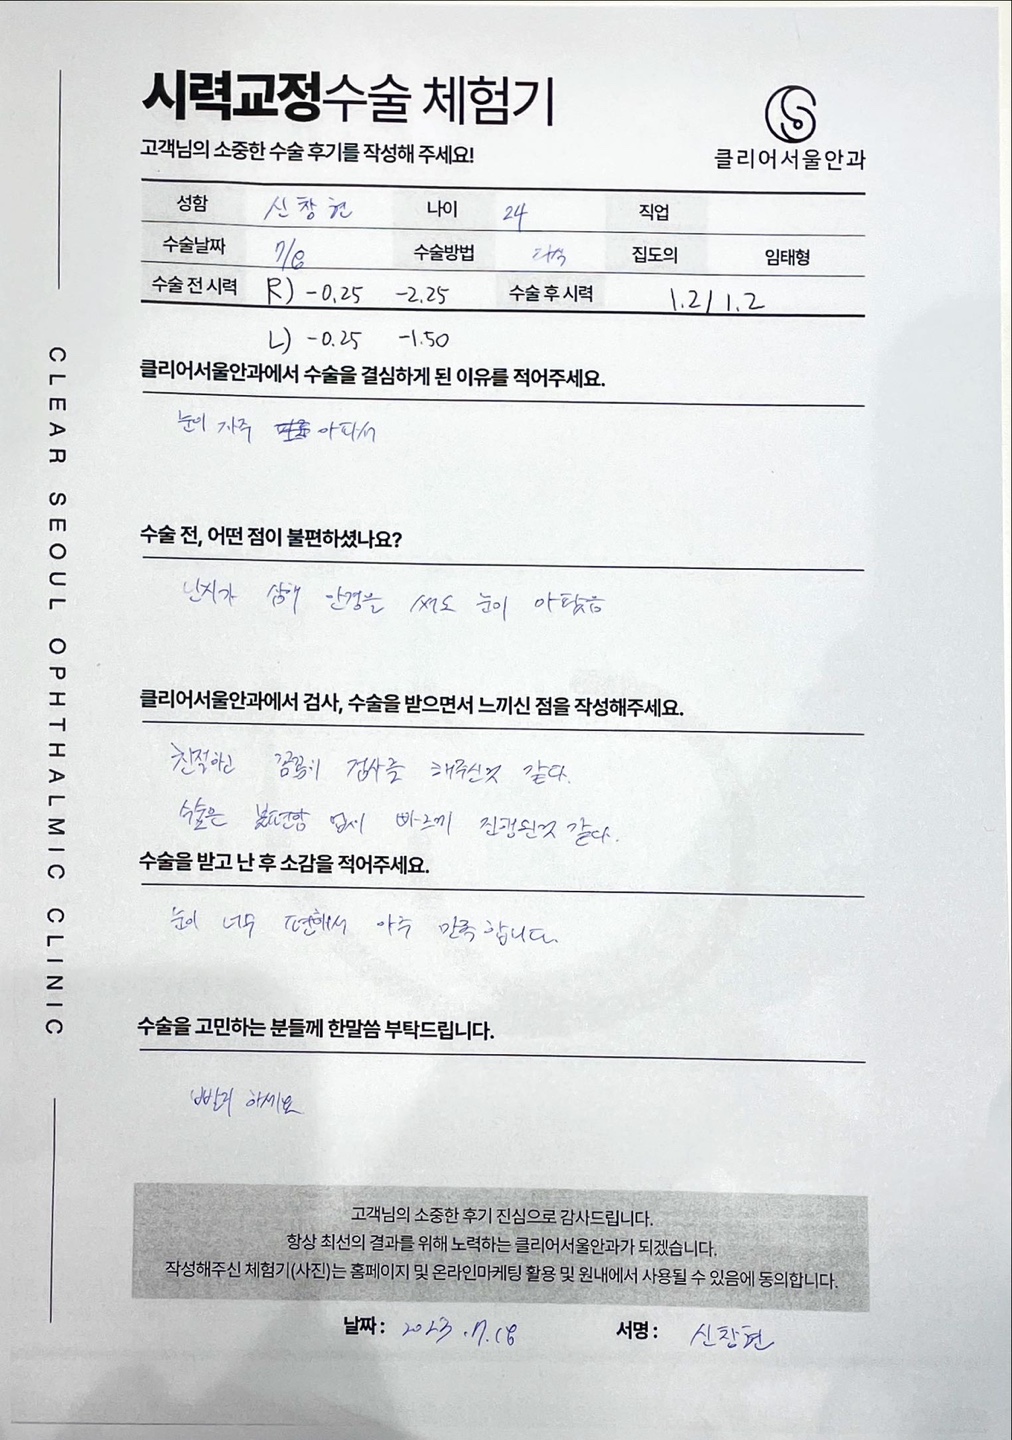 시력교정수술 체험기
고객님의 소중한 수술 후기를 작성해 주세요!
클리어서울안과
성함 신창현 나이 24 직업
수술날짜 7/6 수술방법 집도의 임태형
수술 전 시력 R) -0.25 -2.25 수술 후 시력 1.2/1.2
L) -0.25 -1.50
클리어서울안과에서 수술을 결심하게 된 이유를 적어주세요.
눈이 자주 아파서
수술 전, 어떤 점이 불편하셨나요?
난시가 심해 안경을 써도 눈이 아팠음
클리어서울안과에서 검사, 수술을 받으면서 느끼신 점을 작성해주세요.
친절하고 꼼꼼히 검사를 해주신것 같다.
수술은 불편함 없이 빠르게 진행된것 같다.
수술을 받고 난 후 소감을 적어주세요.
눈이 너무 편해서 아주 만족합니다.
수술을 고민하는 분들께 한말씀 부탁드립니다.
빨리 하세요
고객님의 소중한 후기 진심으로 감사드립니다.
항상 최선의 결과를 위해 노력하는 클리어서울안과가 되겠습니다.
작성해주신 체험기(사진)는 홈페이지 및 온라인마케팅 활용 및 원내에서 사용될 수 있음에 동의합니다.
날짜 : 2023.7. 서명 : 신창현
CLEAR SEOUL OPHTHALMIC CLINIC